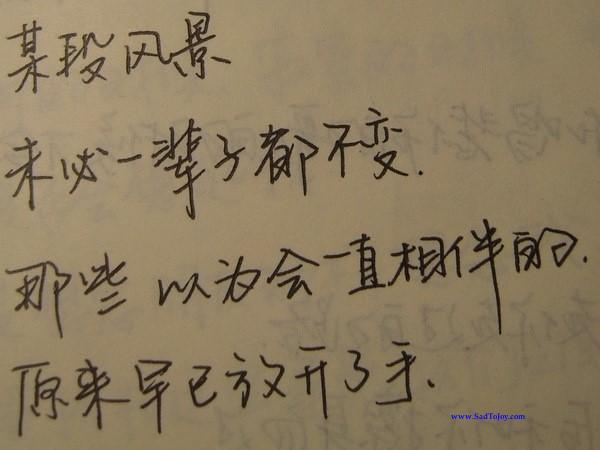 某段风景
未必一辈子都不变.
那些以为会一直相伴的.
原来早已放开了手.
www.SadToJoy.com